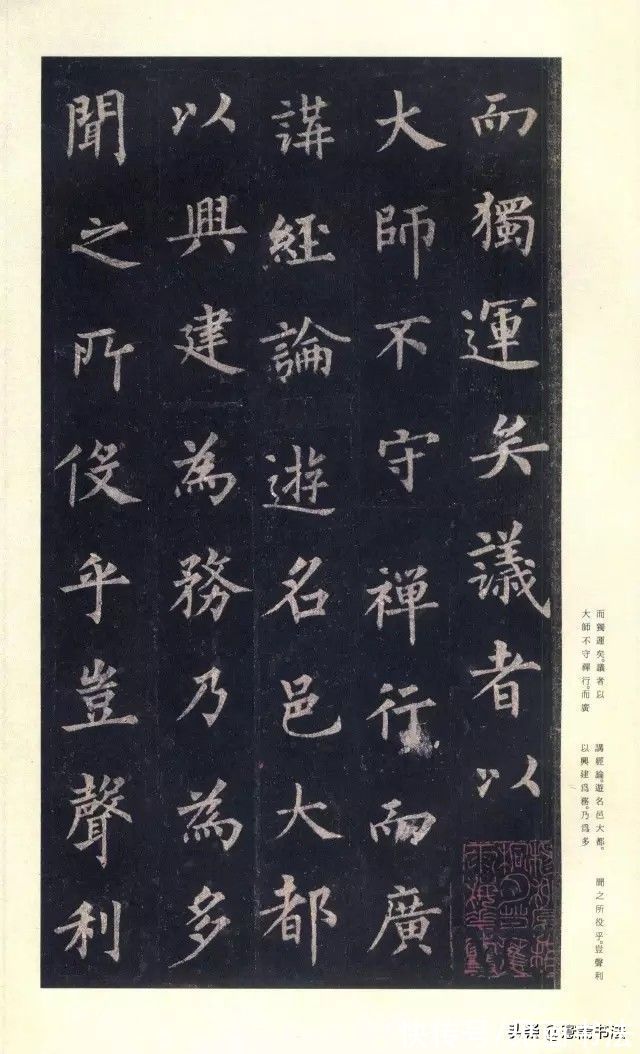 而獨運矣議者以
大師不守禪行而廣
講經論遊名邑大都
以興建為務乃為多
聞之所伇乎豈聲利
而獨運矣。議者以
大師不守禪行。而廣
講經論。遊名邑大都。
以興建爲務。乃爲多
聞之所役乎。豈聲利
头条 书法